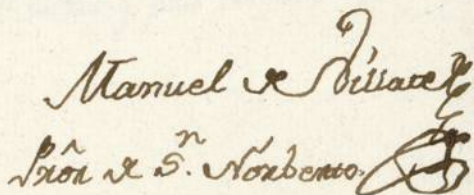 Manuel de Villate
Prõr de S.ⁿ Nõrberto.